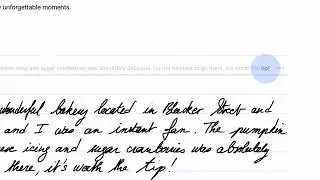 unforgettable moments.
icing and sugar cranberries was absolutely delicious. Do not hesitate to go there, it's worth the tip!
wonderful bakery located in Blacker Street and
and I was an instant fan. The pumpkin
icing and sugar cranberries was absolutely
there, it's worth the tip!